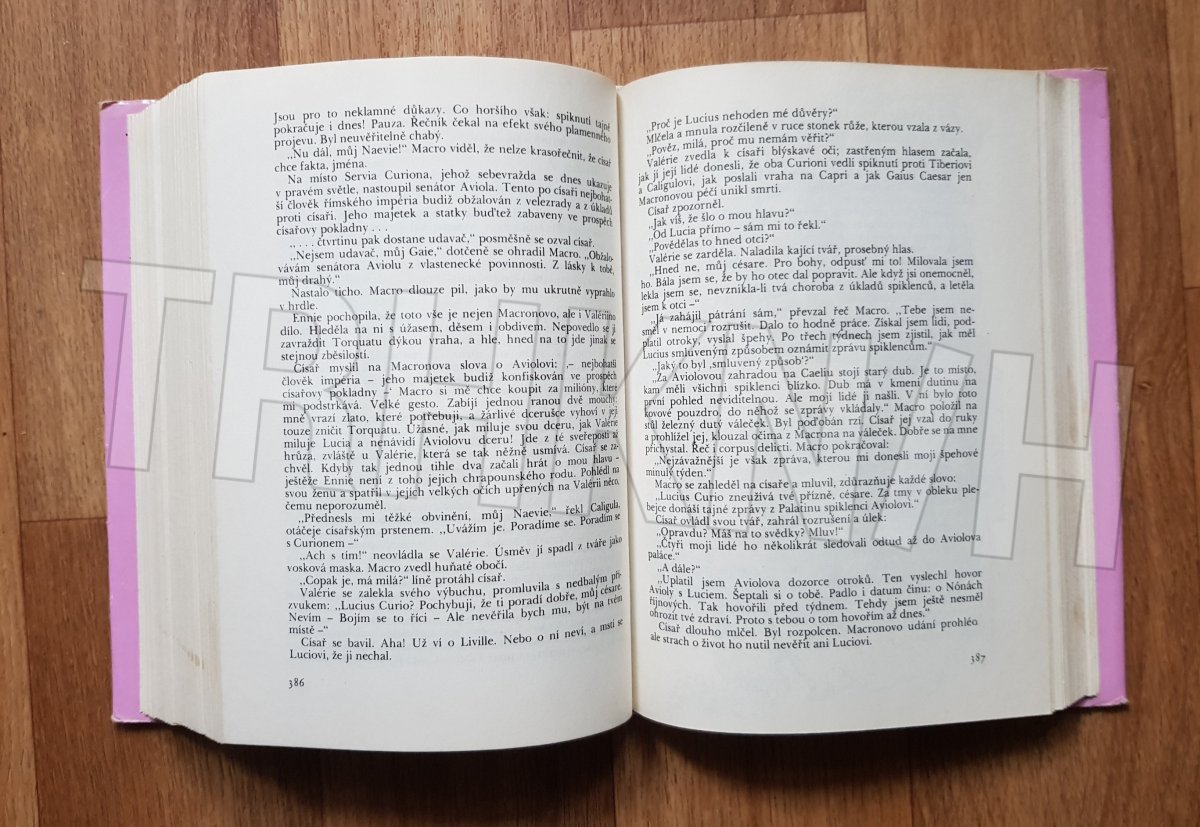 Jsou pro to neklamné důkazy. Co horšího však: spiknutí tajně
pokračuje i dnes! Pauza. Řečník čekal na efekt svého plamenného
projevu. Byl neuvěřitelně chabý.
„Nu dál, můj Naevie!“ Macro viděl, že nelze krasořečnit, že císař
chce fakta, jména.
Na místo Servia Curiona, jehož sebevražda se dnes ukazuje
v pravém světle, nastoupil senátor Aviola. Tento po císaři nejbohat-
ší člověk římského impéria budiž obžalován z velezrady a z úkladů
proti císaři. Jeho majetek a statky buďtež zabaveny ve prospěch
císařovy pokladny . . .
„. . . čtvrtinu pak dostane udavač,“ posměšně se ozval císař.
„Nejsem udavač, můj Gaie,“ dotčeně se ohradil Macro. „Obžalo-
vávám senátora Aviolu z vlastenecké povinnosti. Z lásky k tobě,
můj drahý.“
Nastalo ticho. Macro dlouze pil, jako by mu ukrutně vyprahlo
v hrdle.
Ennie pochopila, že toto vše je nejen Macronovo, ale i Valériino
dílo. Hleděla na ni s úžasem, děsem i obdivem. Nepovedlo se jí
zavraždit Torquatu dýkou vraha, a hle, hned na to jde jinak se
stejnou zběsilostí.
Císař myslil na Macronova slova o Aviolovi: ‚– nejbohatší
člověk impéria – jeho majetek budiž konfiskován ve prospěch
císařovy pokladny –‘ Macro si mě chce koupit za milióny, které
mi podstrkává. Velké gesto. Zabíjí jednou ranou dvě mouchy:
mně vrazí zlato, které potřebuji, a žárlivé dcerušce vyhoví v její
touze zničit Torquatu. Úžasné, jak miluje svou dceru, jak Valérie
miluje Lucia a nenávidí Aviolovu dceru! Jde z té sveřeposti až
hrůza, zvláště u Valérie, která se tak něžně usmívá. Císař se za-
chvěl. Kdyby tak jednou tihle dva začali hrát o mou hlavu –
ještěže Ennie není z toho jejich chrapounského rodu. Pohlédl na
svou ženu a spatřil v jejích velkých očích upřených na Valérii něco,
čemu neporozuměl.
„Přednesls mi těžké obvinění, můj Naevie,“ řekl Caligula,
otáčeje císařským prstenem. „Uvážím je. Poradíme se. Poradím se
s Curionem –“
„Ach s tím!“ neovládla se Valérie. Úsměv jí spadl z tváře jako
vosková maska. Macro zvedl huňaté obočí.
„Copak je, má milá?“ líně protáhl císař.
Valérie se zalekla svého výbuchu, promluvila s nedbalým pří-
zvukem: „Lucius Curio? Pochybuji, že ti poradí dobře, můj césare.
Nevím – Bojím se to říci – Ale nevěřila bych mu, být na tvém
místě –“
Císař se bavil. Aha! Už ví o Liville. Nebo o ní neví, a mstí se
Luciovi, že ji nechal.
386
„Proč je Lucius nehoden mé důvěry?“
Mlčela a mnula rozčileně v ruce stonek růže, kterou vzala z vázy.
„Pověz, milá, proč mu nemám věřit?“
Valérie zvedla k císaři blýskavé oči; zastřeným hlasem začala,
jak jí její lidé donesli, že oba Curioni vedli spiknutí proti Tiberiovi
a Caligulovi, jak poslali vraha na Capri a jak Gaius Caesar jen
Macronovou péčí unikl smrti.
Císař zpozorněl.
„Jak víš, že šlo o mou hlavu?“
„Od Lucia přímo – sám mi to řekl.“
„Povědělas to hned otci?“
Valérie se zarděla. Naladila kající tvář, prosebný hlas.
„Hned ne, můj césare. Pro bohy, odpusť mi to! Milovala jsem
ho. Bála jsem se, že by ho otec dal popravit. Ale když jsi onemocněl,
lekla jsem se, nevznikla-li tvá choroba z úkladů spiklenců, a letěla
jsem k otci –“
„Já zahájil pátrání sám,“ převzal řeč Macro. „Tebe jsem ne-
směl v nemoci rozrušit. Dalo to hodně práce. Získal jsem lidi, pod-
platil otroky, vyslal špehy. Po třech týdnech jsem zjistil, jak měl
Lucius smluveným způsobem oznámit zprávu spiklencům.“
„Jaký to byl ‚smluvený způsob‘?“
„Za Aviolovou zahradou na Caeliu stojí starý dub. Je to místo,
kam měli všichni spiklenci blízko. Dub má v kmeni dutinu na
první pohled neviditelnou. Ale moji lidé ji našli. V ní bylo toto
kovové pouzdro, do něhož se zprávy vkládaly.“ Macro položil na
stůl železný dutý váleček. Byl poďobán rzí. Císař jej vzal do ruky
a prohlížel jej, klouzal očima z Macrona na váleček. Dobře se na mne
přichystal. Řeč i corpus delicti. Macro pokračoval:
„Nejzávažnější je však zpráva, kterou mi donesli moji špehové
minulý týden.“
Macro se zahleděl na císaře a mluvil, zdůrazňuje každé slovo:
„Lucius Curio zneužívá tvé přízně, césare. Za tmy v obleku ple-
bejce donáší tajné zprávy z Palatinu spiklenci Aviolovi.“
Císař ovládl svou tvář, zahrál rozrušení a úlek:
„Opravdu? Máš na to svědky? Mluv!“
„Čtyři moji lidé ho několikrát sledovali odtud až do Aviolova
paláce.“
„A dále?“
„Uplatil jsem Aviolova dozorce otroků. Ten vyslechl hovor
Avioly s Luciem. Šeptali si o tobě. Padlo i datum činu: o Nónách
říjnových. Tak hovořili před týdnem. Tehdy jsem ještě nesměl
ohrozit tvé zdraví. Proto s tebou o tom hovořím až dnes.“
Císař dlouho mlčel. Byl rozpolcen. Macronovo udání prohlédl,
ale strach o život ho nutil nevěřit ani Luciovi.
387
TRHKNIH